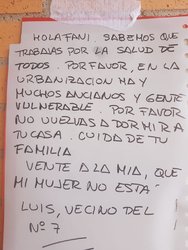 HOLA FANI. SABEMOS QUE
TRABAJAS POR LA SALUD DE
TODOS. POR FAVOR, EN LA
URBANIZACION HAY
MUCHOS ANCIANOS Y GENTE
VULNERABLE. POR FAVOR
NO VUELVAS A DORMIR A
TU CASA. CUIDA DE TU
FAMILIA
VENTE A LA MIA, QUE
MI MUJER NO ESTA
LUIS, VECINO DEL
Nº 7